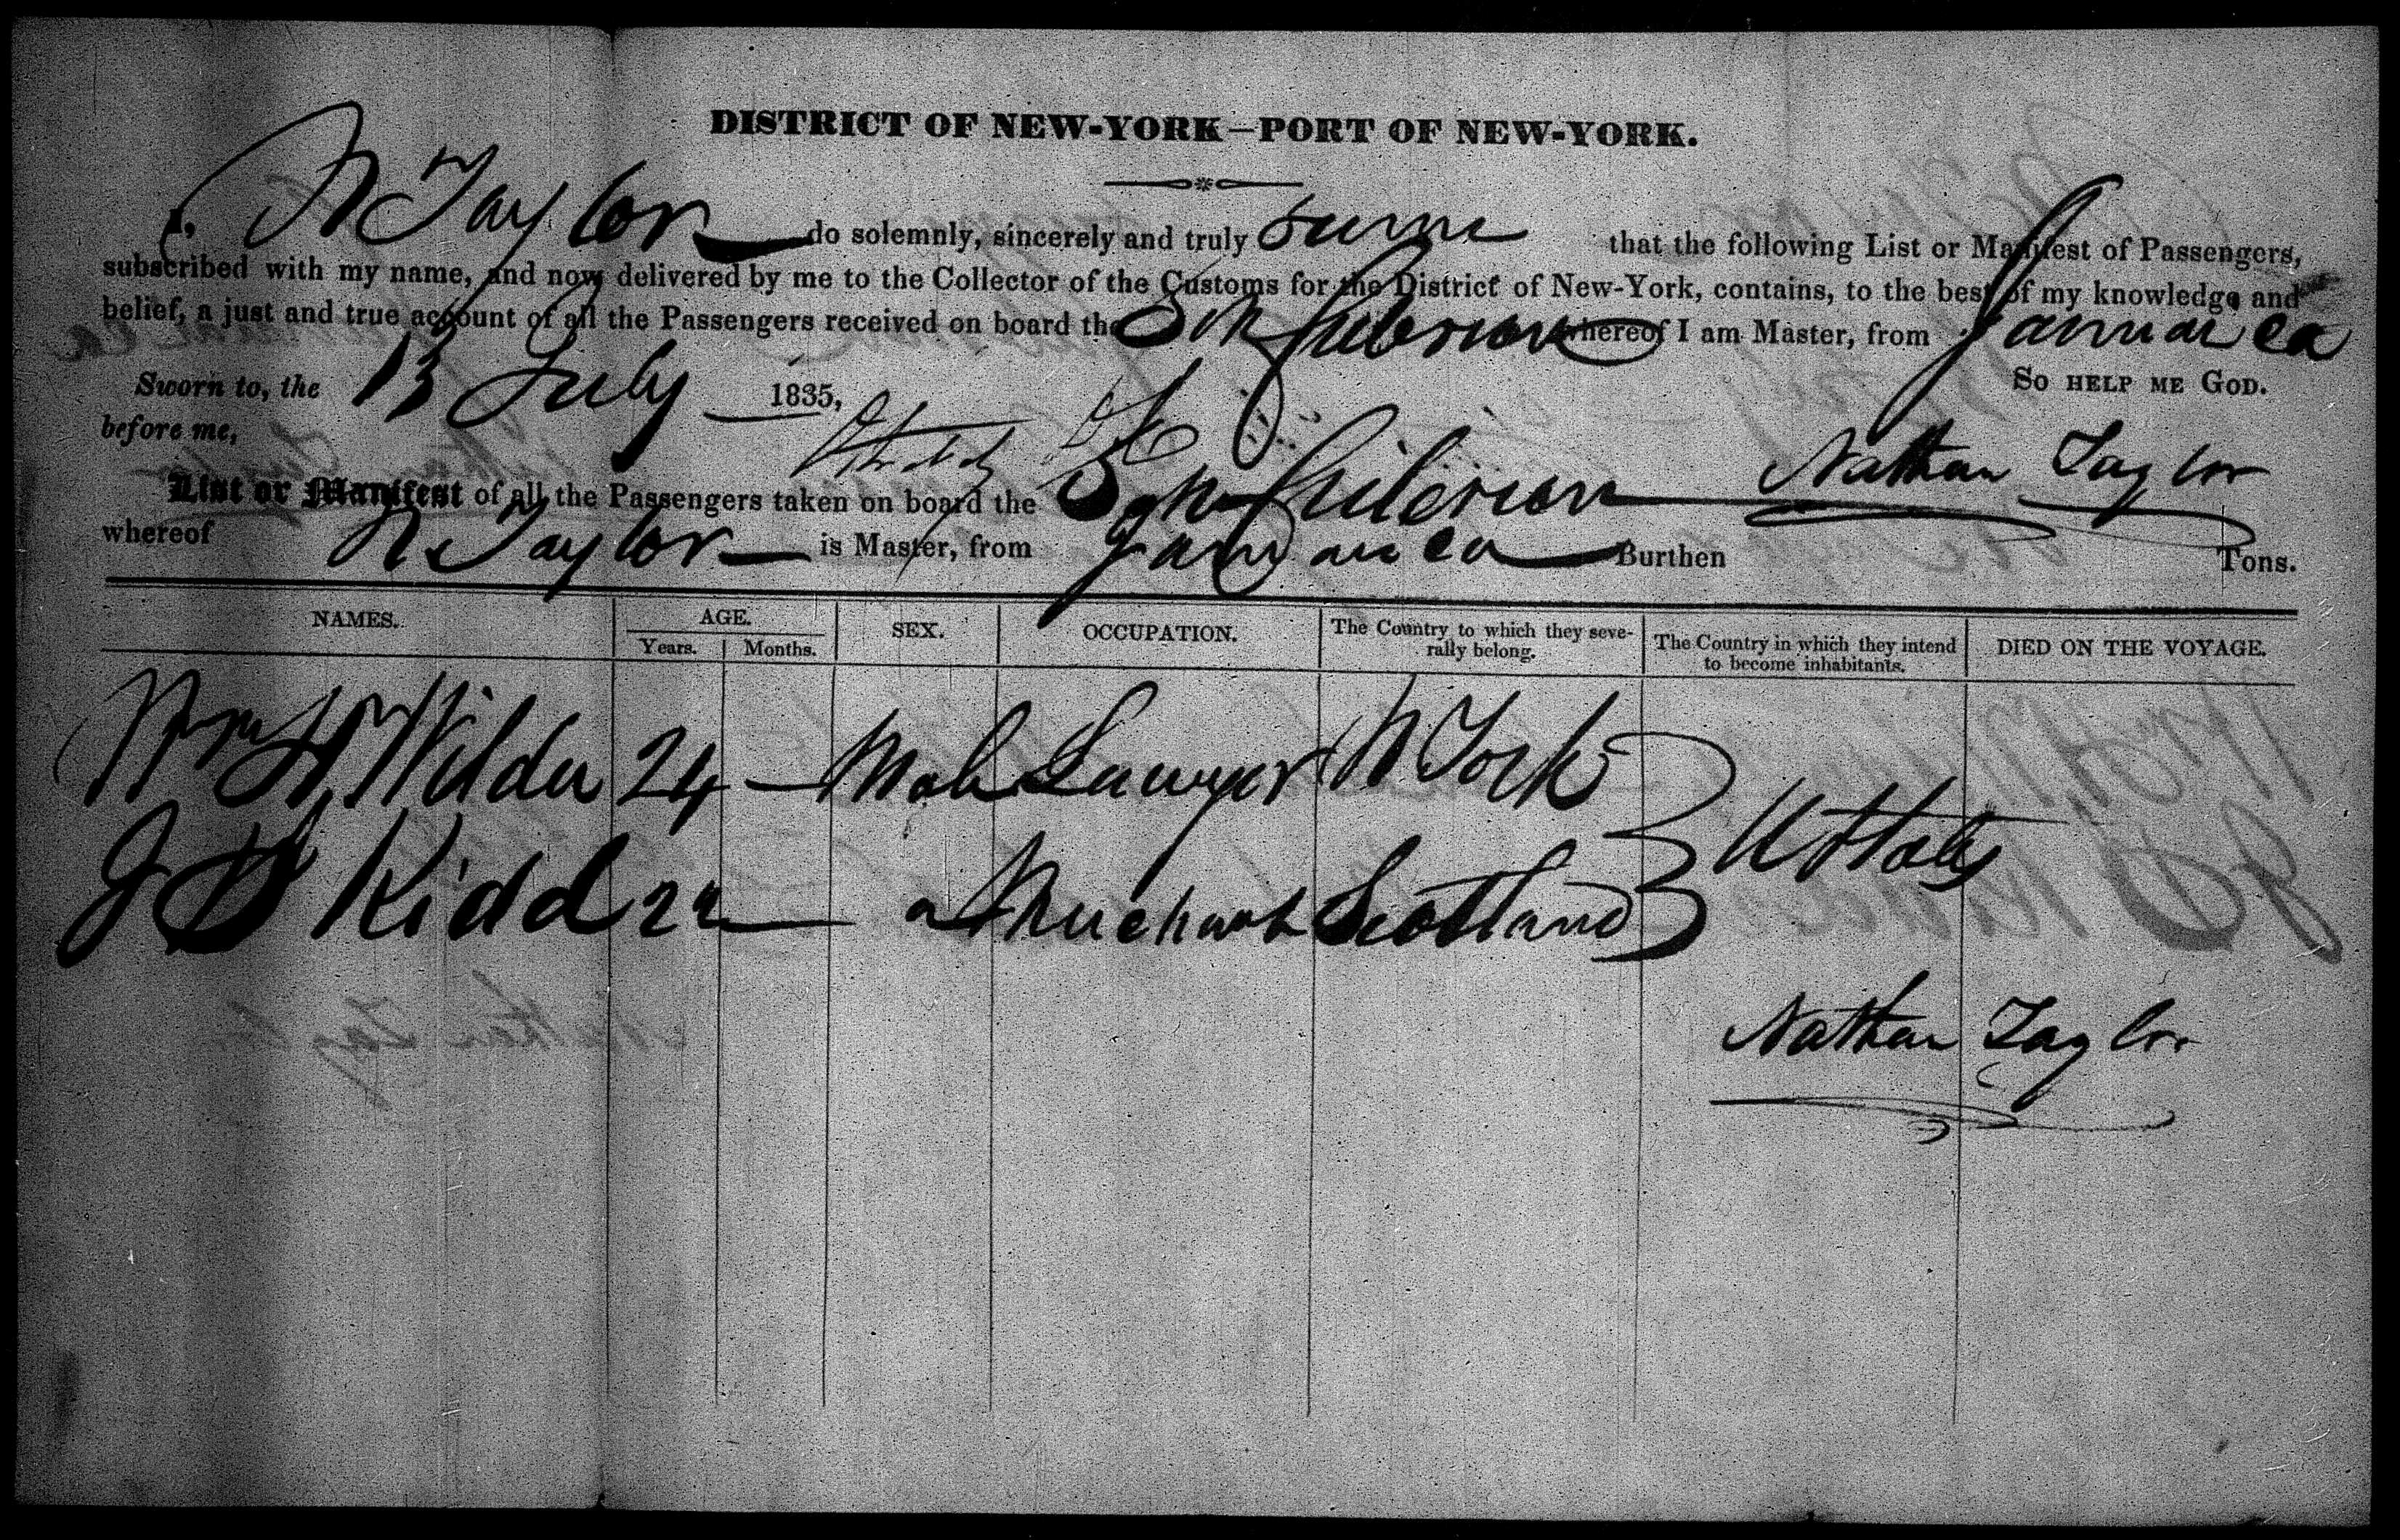 DISTRICT OF NEW-YORK—PORT OF NEW-YORK.
I, N Taylor do solemnly, sincerely and truly that the following List or Manifest of Passengers,
subscribed with my name, and now delivered by me to the Collector of the Customs for the District of New-York, contains, to the best of my knowledge and
belief, a just and true account of all the Passengers received on board the Sch Criterion whereof I am Master, from Jamaica
Sworn to, the 13 July 1835, So help me God.
before me,
Nathan Taylor
List or Manifest of all the Passengers taken on board the Sch Criterion
whereof N Taylor is Master, from Jamaica Burthen Tons.
NAMES. AGE. Years. Months. SEX. OCCUPATION. The Country to which they severally belong. The Country in which they intend to become inhabitants. DIED ON THE VOYAGE.
Wm H Wilder 24 — Male Lawyer N York
U States
J D Kidd 22 — Merchant Scotland
Nathan Taylor